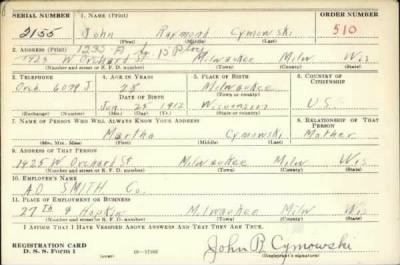 SERIAL NUMBER 1. NAME (Print) ORDER NUMBER
2155 John Raymond Cymowski 510
(First) (Middle) (Last)
2. ADDRESS (Print) 1233 A So 15 Place
1925 W Orchard St Milwaukee Milw. Wis
(Number and street or R. F. D. number) (Town) (County) (State)
3. TELEPHONE 4. AGE IN YEARS 5. PLACE OF BIRTH 6. COUNTRY OF CITIZENSHIP
Orch. 6079 J 28 Milwaukee
DATE OF BIRTH (Town or county)
Jan. 25 1912 Wisconsin U.S.
(Exchange) (Number) (Mo.) (Day) (Yr.) (State or country)
7. NAME OF PERSON WHO WILL ALWAYS KNOW YOUR ADDRESS 8. RELATIONSHIP OF THAT PERSON
Martha Cymowski Mother
(Mr., Mrs., Miss) (First) (Middle) (Last)
9. ADDRESS OF THAT PERSON
1925 W Orchard St Milwaukee Milw Wis
(Number and street or R. F. D. number) (Town) (County) (State)
10. EMPLOYER'S NAME
A.O. SMITH Co.
11. PLACE OF EMPLOYMENT OR BUSINESS
27th & Hopkin Milwaukee Milw Wis
(Number and street or R. F. D. number) (Town) (County) (State)
I AFFIRM THAT I HAVE VERIFIED ABOVE ANSWERS AND THAT THEY ARE TRUE.
REGISTRATION CARD
D. S. S. Form 1
John R Cymowski
(Registrant's signature)